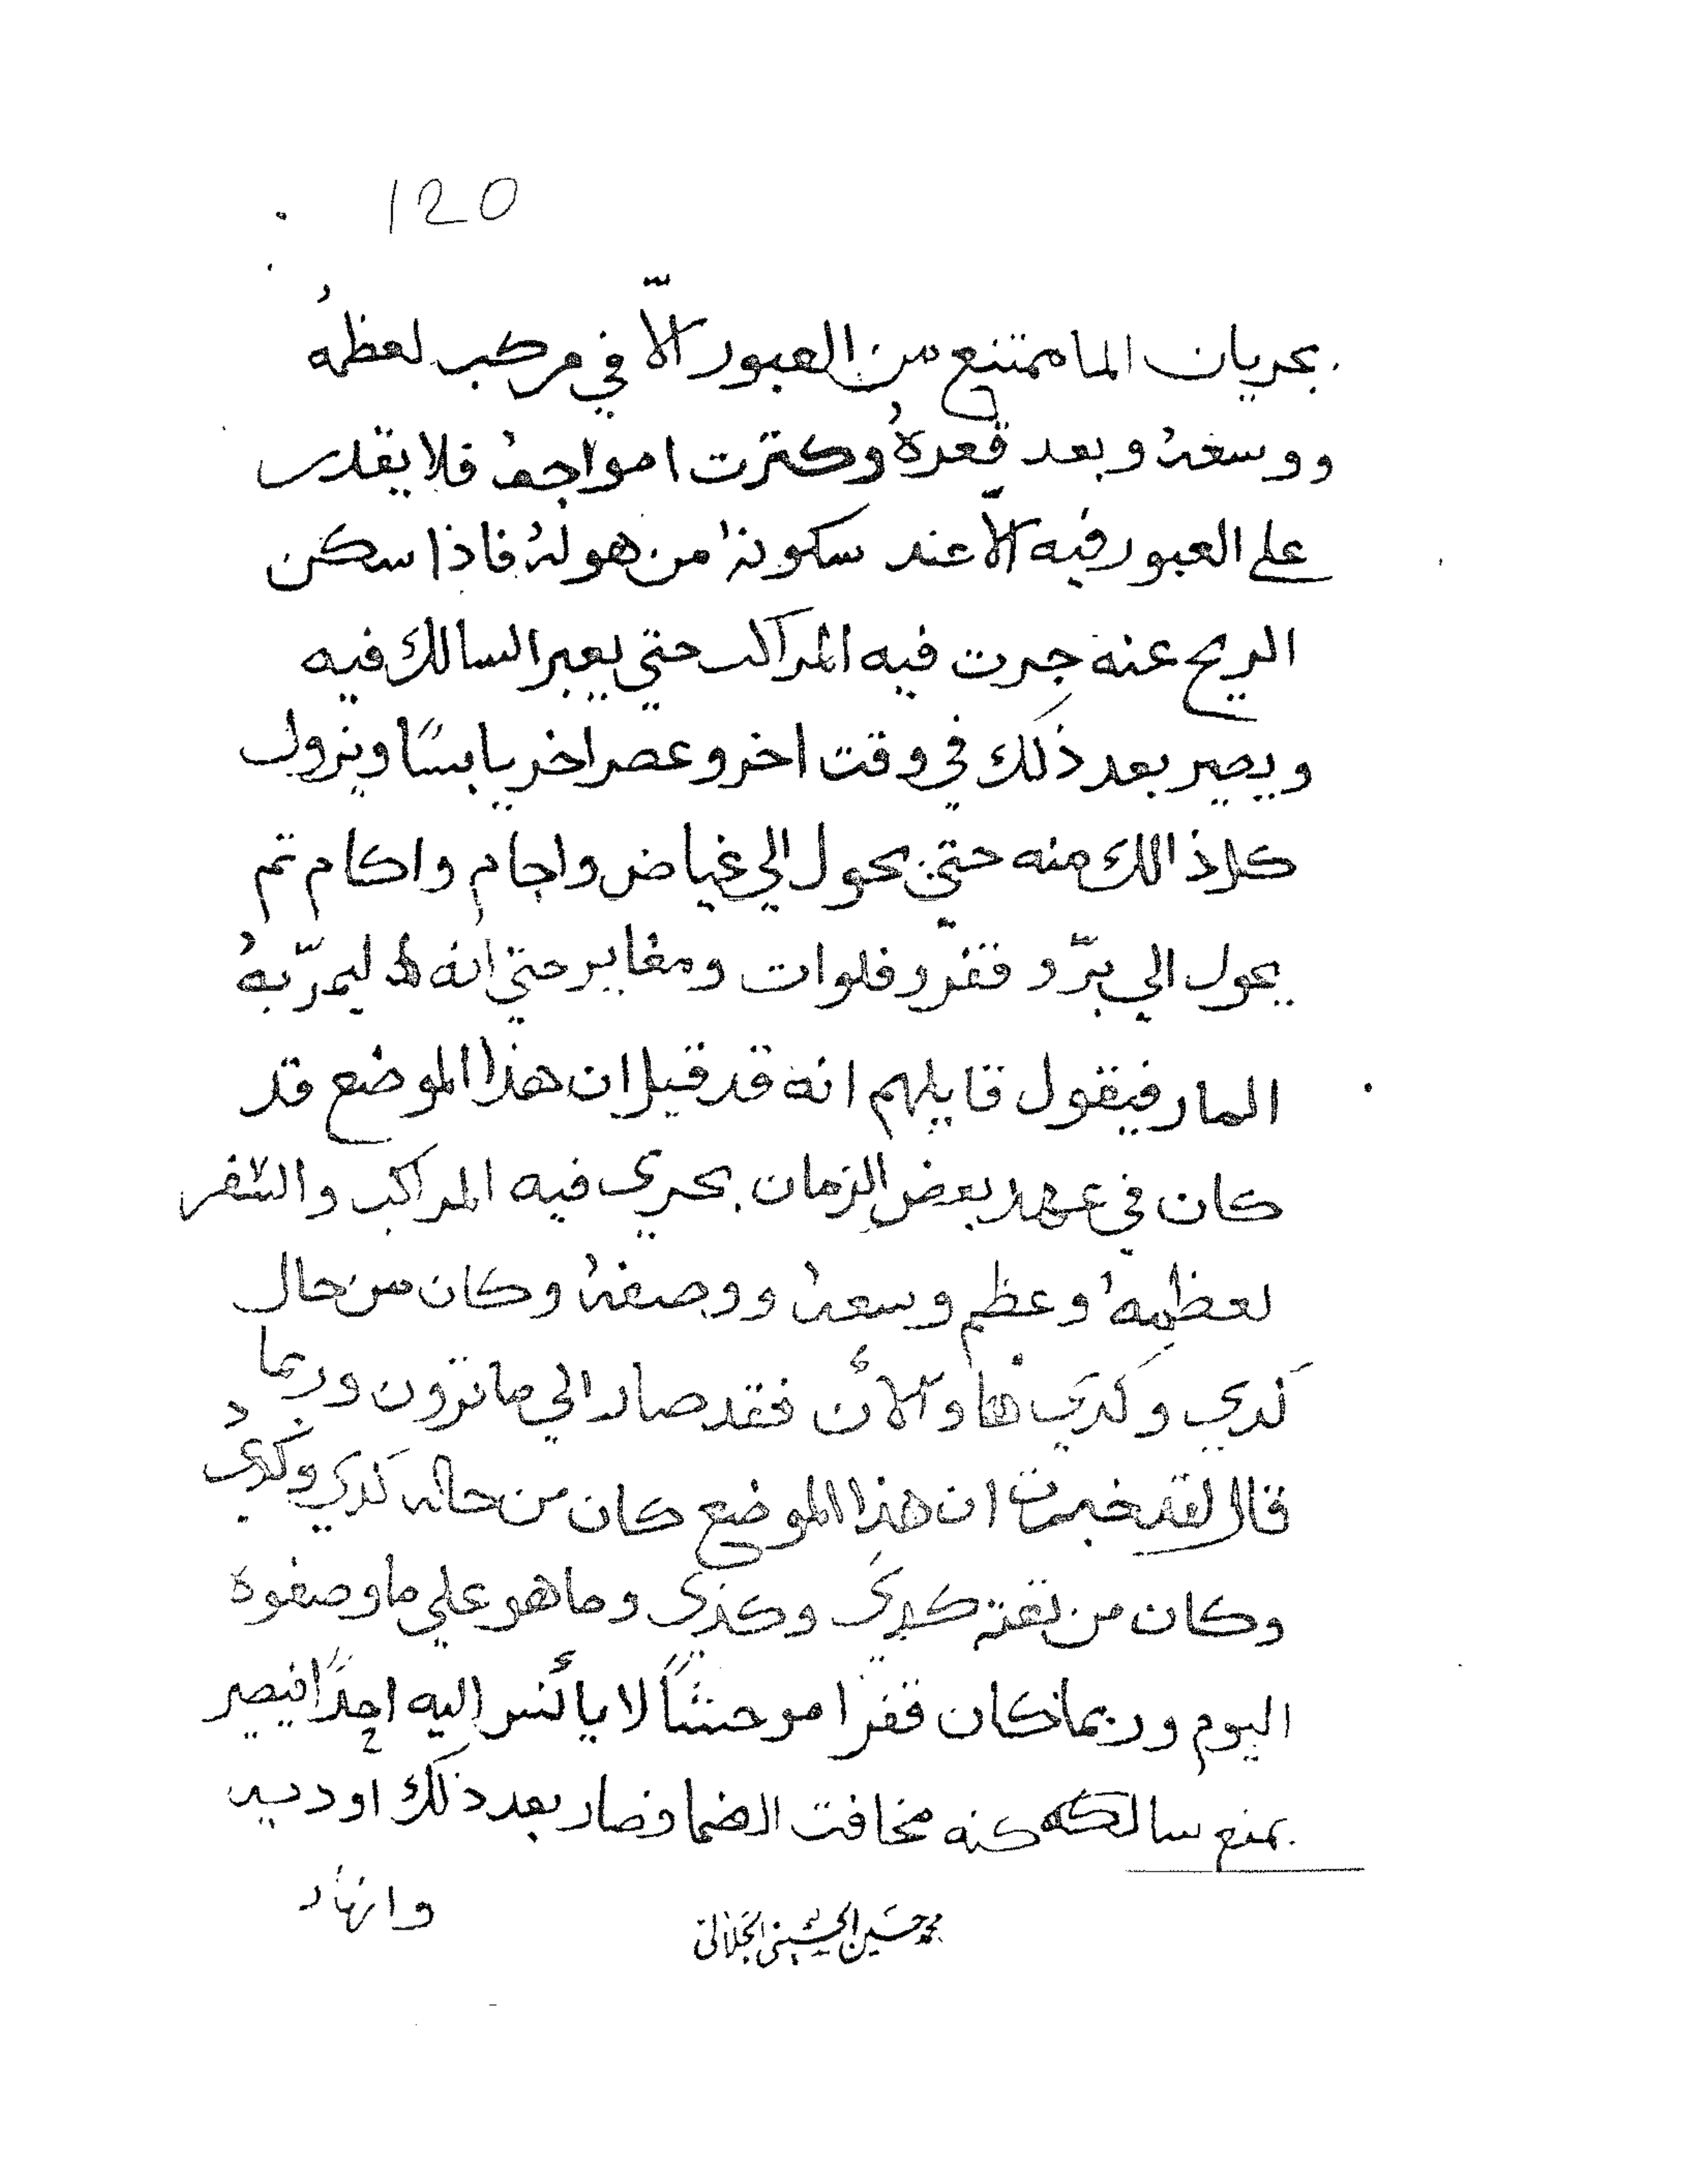 120
بجريان الما ممتنع من العبور الاّ في مركب لعظمهُ
ووسعهُ وبعد قعرهُ وكترت امواجهُ فلا يقدر
علي العبور فيه الاّ عند سكونهُ من هولهُ فاذا سكن
الريح عنه جرت فيه المراكب حتي يعبر السالك فيه
ويصير بعد ذلك في وقت اخر وعصر اخر يابسًا ويزول
كلاذالك منه حتي يحول الي غياض واجام واكام تم
يحول الي برّ وقفر وفلوات ومغاير حتي انه ليمرّ بهُ
المار فيقول قايلهم انه قد قيل ان هذا الموضع قد
كان في عهد بعض الزمان يجري فيه المراكب والسفر
لعظمهُ وعظم وسعهُ ووصفهُ وكان من حال
كدي وكدي والاأن فقد صار الي ما ترون وربما
قال لقد خبرت ان هذا الموضع كان من حاله كذي وكدي
وكان من نعته كدي وكذي وما هو علي ما وصفوه
اليوم وربما كان قفرا موحشًا لا يائنس اليه احدًا فيصير
يمنع سالكه كنه مخافت الضما فصار بعد ذلك اوديه
وانهار
محمد حسين الحسيني الجلالي